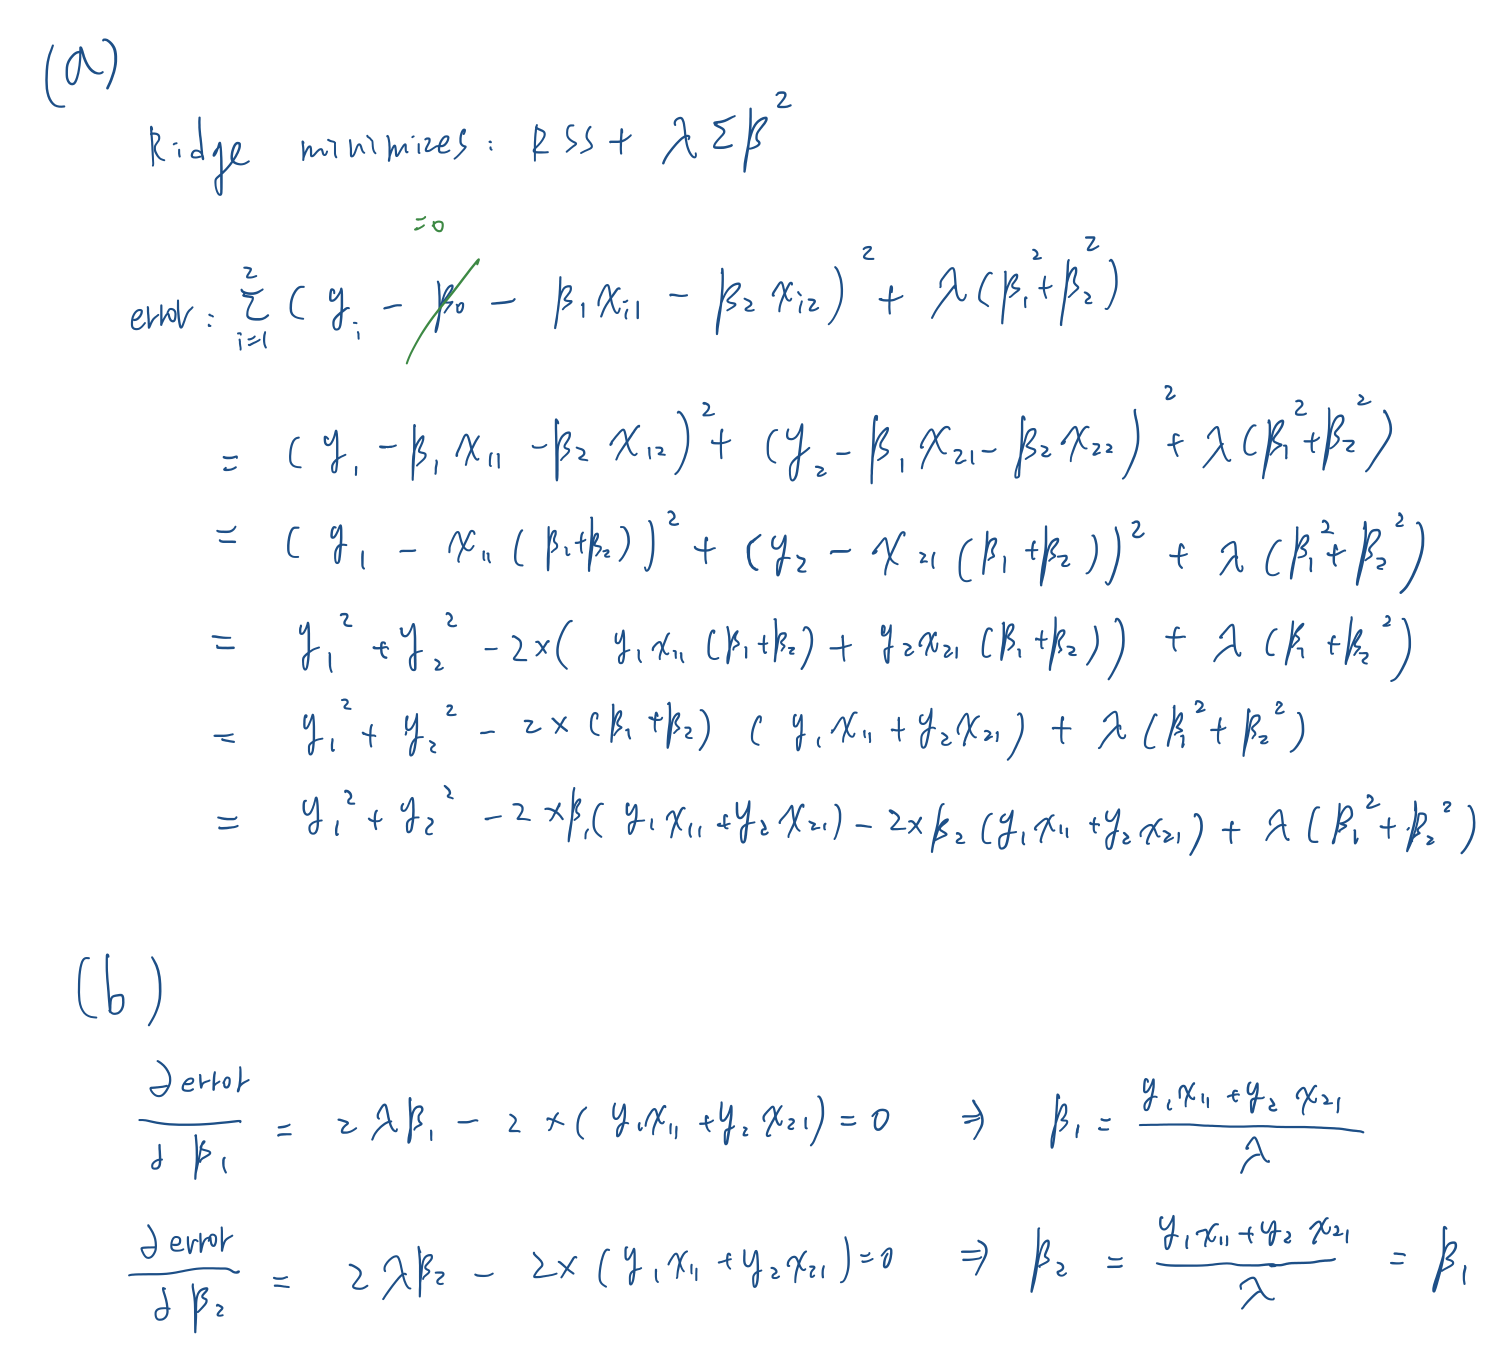 (a)
Ridge minimizes: RSS + λ Σβ²
=0
error: Σ_{i=1}^{2} ( y_i - β₀ - β₁x_{i1} - β₂x_{i2})² + λ(β₁²+β₂²)
= ( y₁ - β₁x₁₁ - β₂x₁₂)² + (y₂ - β₁x₂₁ - β₂x₂₂)² + λ(β₁²+β₂²)
= ( y₁ - x₁₁(β₁+β₂))² + (y₂ - x₂₁(β₁+β₂))² + λ(β₁²+β₂²)
= y₁² + y₂² - 2×( y₁x₁₁(β₁+β₂) + y₂x₂₁(β₁+β₂)) + λ(β₁+β₂²)
= y₁² + y₂² - 2×(β₁+β₂) ( y₁x₁₁ + y₂x₂₁) + λ(β₁²+β₂²)
= y₁² + y₂² - 2×β₁( y₁x₁₁ + y₂x₂₁) - 2×β₂(y₁x₁₁ + y₂x₂₁) + λ(β₁²+β₂²)
(b)
∂error/∂β₁ = 2λβ₁ - 2×( y₁x₁₁ + y₂x₂₁) = 0 ⇒ β₁ = (y₁x₁₁ + y₂x₂₁)/λ
∂error/∂β₂ = 2λβ₂ - 2×(y₁x₁₁ + y₂x₂₁) = 0 ⇒ β₂ = (y₁x₁₁ + y₂x₂₁)/λ = β₁